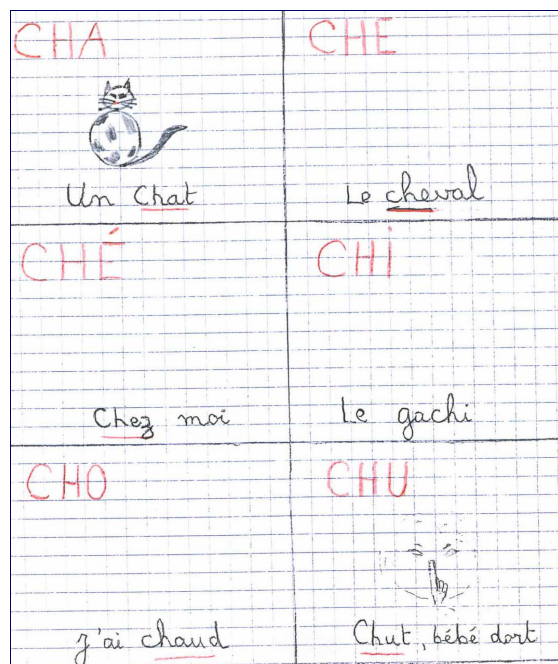 CHA
Un Chat
CHE
Le cheval
CHÉ
Chez moi
CHI
Le gachi
CHO
J'ai chaud
CHU
Chut, bébé dort